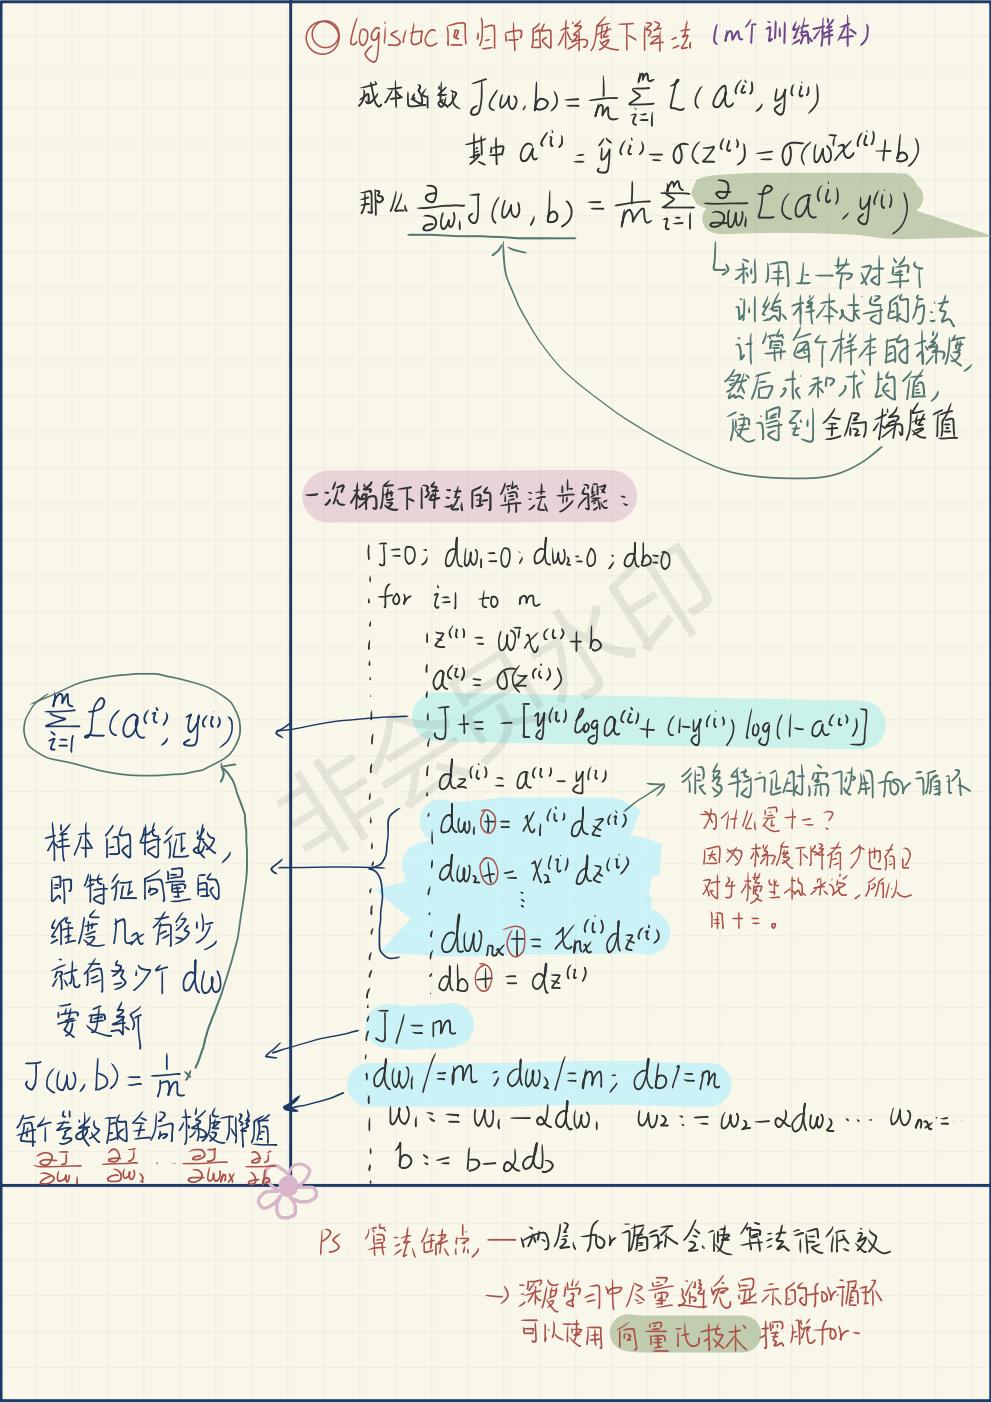 logisitc回归中的梯度下降法 (m个训练样本)
成本函数 J(w,b) = 1/m Σ_{i=1}^{m} L(a^{(i)}, y^{(i)})
其中 a^{(i)} = ŷ^{(i)} = σ(z^{(i)}) = σ(w^T x^{(i)}+b)
那么 ∂/∂w₁ J(w,b) = 1/m Σ_{i=1}^{m} ∂/∂w₁ L(a^{(i)}, y^{(i)})
↳利用上一节对单个
训练样本求导的方法
计算每个样本的梯度,
然后求和求均值,
便得到全局梯度值
一次梯度下降法的算法步骤:
J=0; dw₁=0; dw₂=0; db=0
for i=1 to m
z^{(i)} = w^T x^{(i)}+b
a^{(i)} = σ(z^{(i)})
J += -[y^{(i)} log a^{(i)} + (1-y^{(i)}) log(1-a^{(i)})]
Σ_{i=1}^{m} L(a^{(i)}, y^{(i)})
dz^{(i)} = a^{(i)} - y^{(i)}
→ 很多特征时需使用for循环
dw₁ += x₁^{(i)} dz^{(i)}
dw₂ += x₂^{(i)} dz^{(i)}
⋮
dw_{nx} += x_{nx}^{(i)} dz^{(i)}
db += dz^{(i)}
为什么是+=?
因为梯度下降有个也有
对于 来说,所以
用+=。
样本的特征数,
即特征向量的
维度nx有多少,
就有多少个dw
要更新
J /= m
J(w,b) = 1/m
dw₁/=m; dw₂/=m; db/=m
每个参数的全局梯度 值
∂J/∂w₁ ∂J/∂w₂ ... ∂J/∂w_{nx} ∂J/∂b
w₁ := w₁ - αdw₁ w₂ := w₂ - αdw₂ ... w_{nx} := ...
b := b - αdb
PS 算法缺点 — 两层for循环会使算法很低效
→ 深度学习中尽量避免显示的for循环
可以使用向量化技术摆脱for-
非会员水印